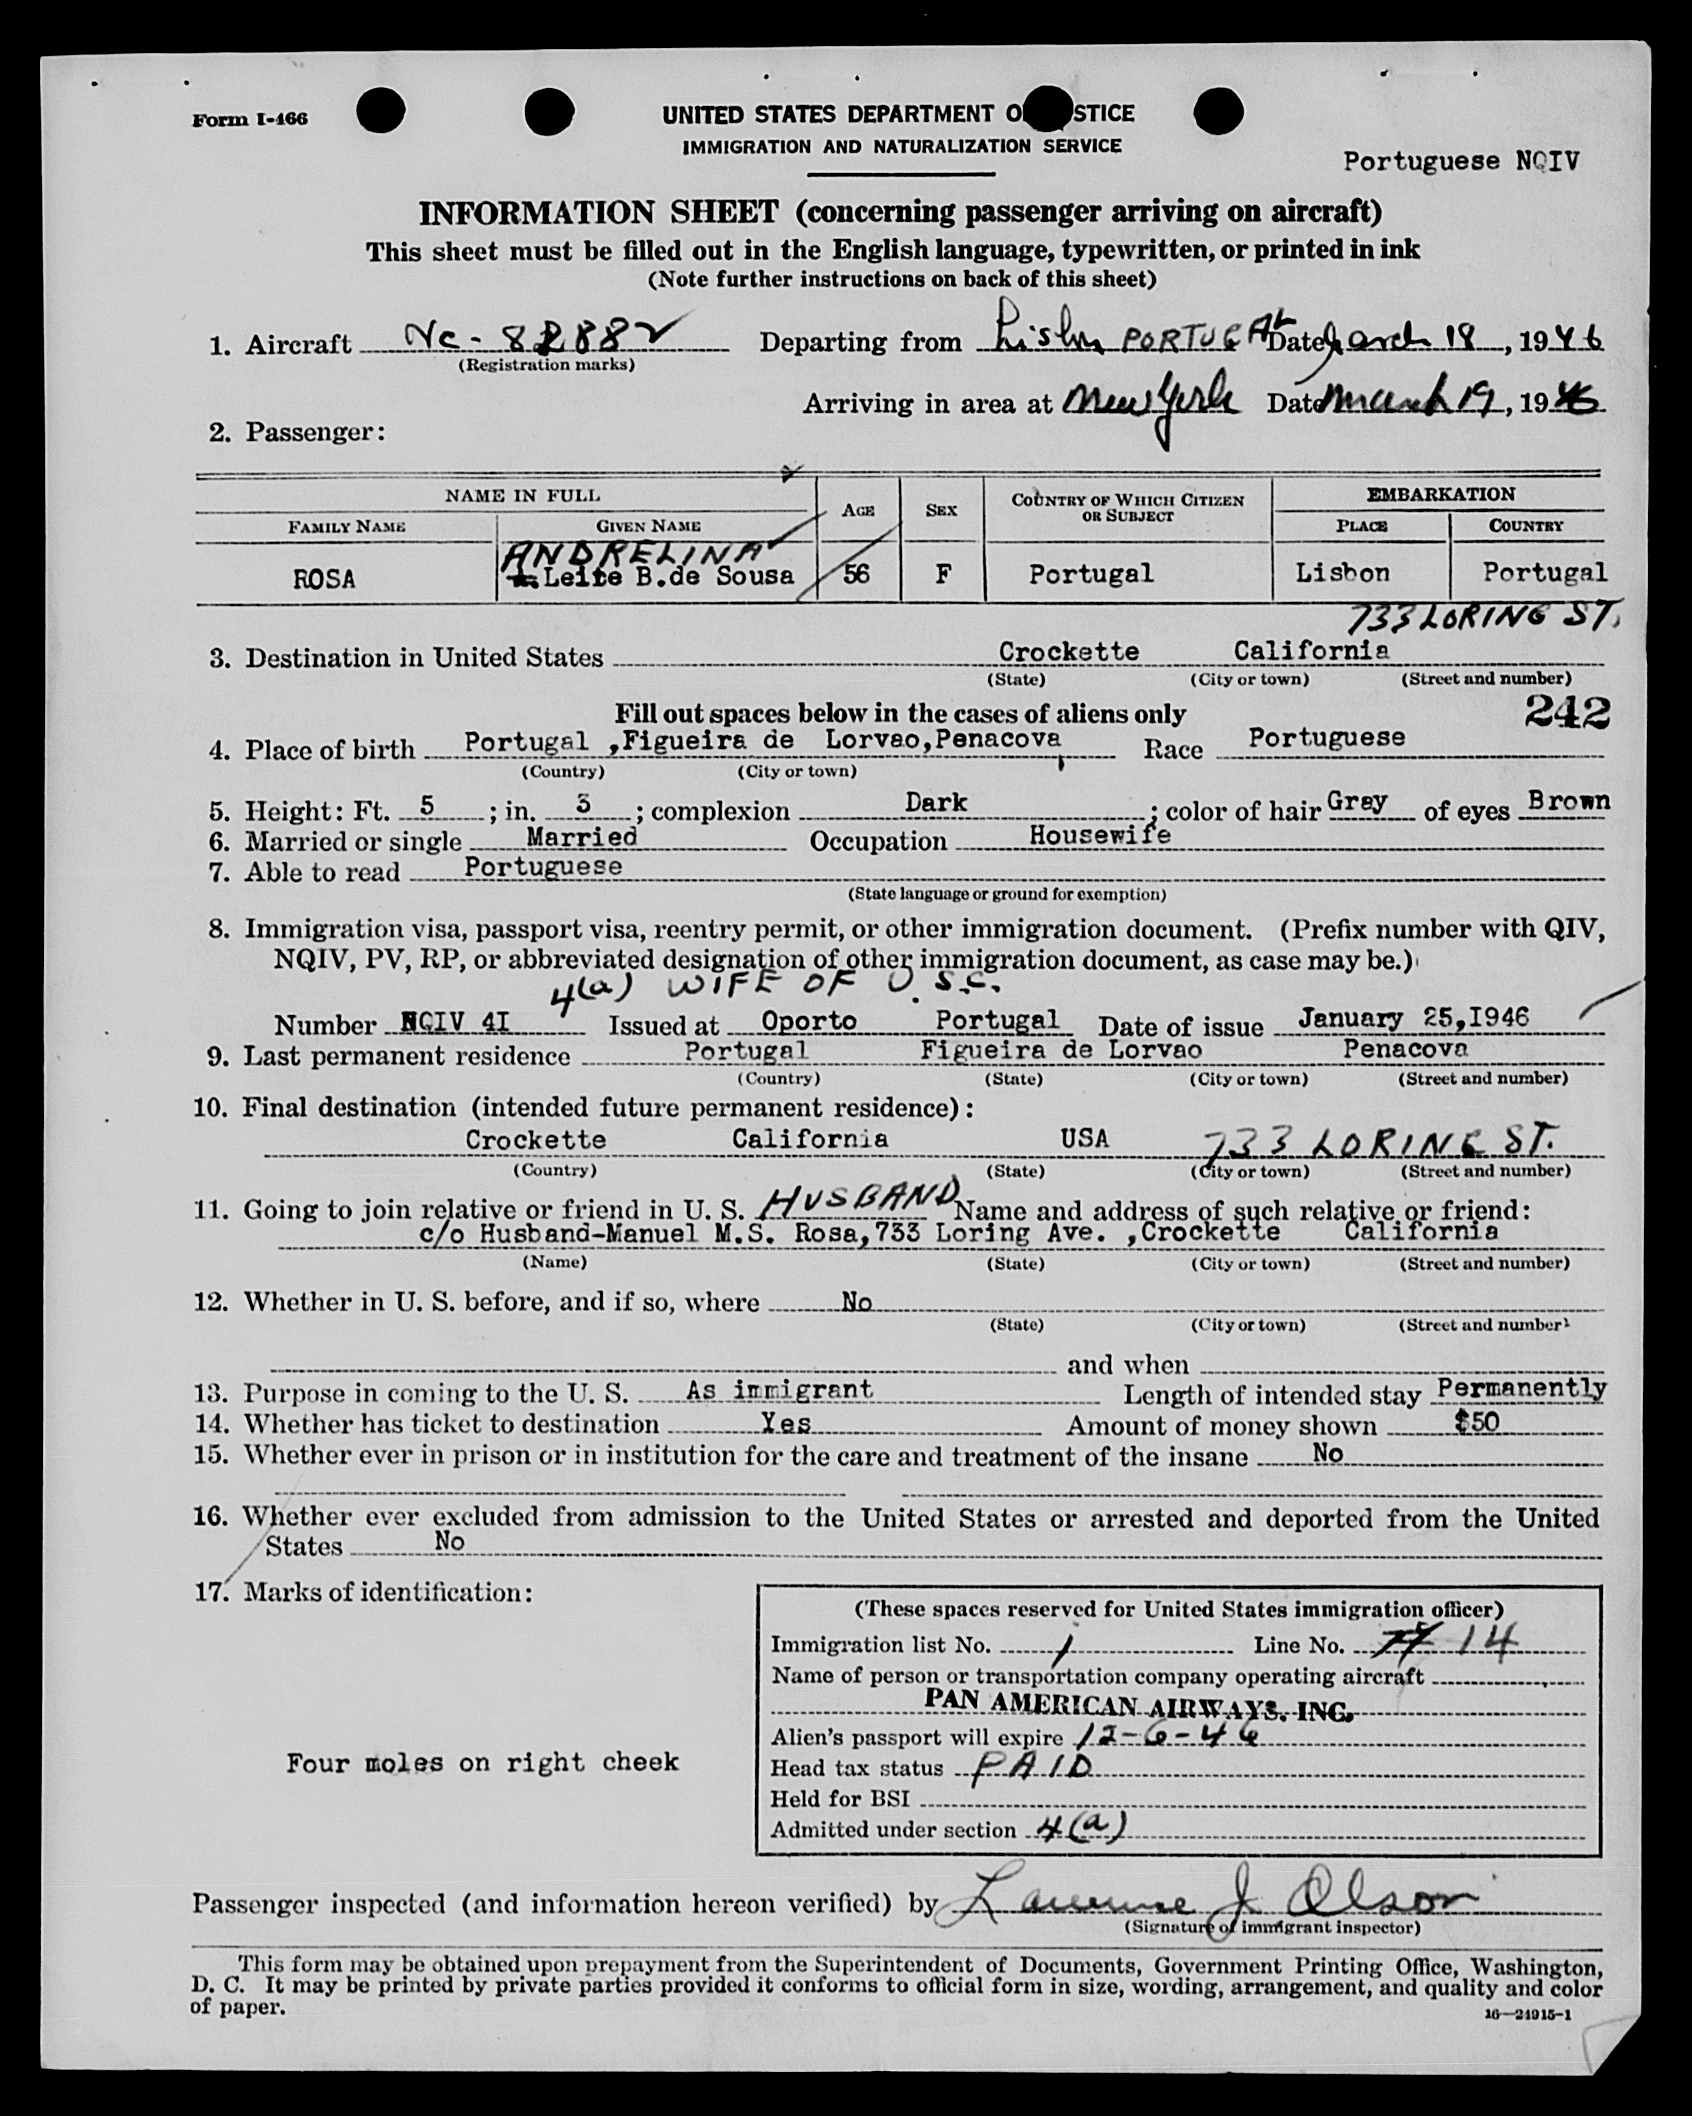 Form I-466
UNITED STATES DEPARTMENT O STICE
IMMIGRATION AND NATURALIZATION SERVICE
Portuguese NQIV
INFORMATION SHEET (concerning passenger arriving on aircraft)
This sheet must be filled out in the English language, typewritten, or printed in ink
(Note further instructions on back of this sheet)
1. Aircraft Nc-82882 Departing from Lisbn PORTUGAL Date March 18, 1946
(Registration marks)
Arriving in area at New York Date March 19, 1946
2. Passenger:
NAME IN FULL AGE SEX COUNTRY OF WHICH CITIZEN OR SUBJECT EMBARKATION
FAMILY NAME GIVEN NAME PLACE COUNTRY
ANDRELINA
ROSA Leite B.de Sousa 56 F Portugal Lisbon Portugal
733 LORING ST.
3. Destination in United States Crockette California
(State) (City or town) (Street and number)
Fill out spaces below in the cases of aliens only 242
4. Place of birth Portugal ,Figueira de Lorvao,Penacova Race Portuguese
(Country) (City or town)
5. Height: Ft. 5 ; in. 3 ; complexion Dark ; color of hair Gray of eyes Brown
6. Married or single Married Occupation Housewife
7. Able to read Portuguese
(State language or ground for exemption)
8. Immigration visa, passport visa, reentry permit, or other immigration document. (Prefix number with QIV,
NQIV, PV, RP, or abbreviated designation of other immigration document, as case may be.)
4(a) WIFE OF U.S.C.
Number NQIV 4I Issued at Oporto Portugal Date of issue January 25,I946
9. Last permanent residence Portugal Figueira de Lorvao Penacova
(Country) (State) (City or town) (Street and number)
10. Final destination (intended future permanent residence):
Crockette California USA 733 LORING ST.
(Country) (State) (City or town) (Street and number)
11. Going to join relative or friend in U. S. HUSBAND Name and address of such relative or friend:
c/o Husband-Manuel M.S. Rosa,733 Loring Ave. ,Crockette California
(Name) (State) (City or town) (Street and number)
12. Whether in U. S. before, and if so, where No
(State) (City or town) (Street and number)
and when
13. Purpose in coming to the U. S. As immigrant Length of intended stay Permanently
14. Whether has ticket to destination Yes Amount of money shown $50
15. Whether ever in prison or in institution for the care and treatment of the insane No
16. Whether ever excluded from admission to the United States or arrested and deported from the United
States No
17. Marks of identification:
(These spaces reserved for United States immigration officer)
Immigration list No. 1 Line No. 14
Name of person or transportation company operating aircraft
PAN AMERICAN AIRWAYS. INC.
Alien's passport will expire 12-6-46
Four moles on right cheek
Head tax status PAID
Held for BSI
Admitted under section 4(a)
Passenger inspected (and information hereon verified) by Lawrence J Olson
(Signature of immigrant inspector)
This form may be obtained upon prepayment from the Superintendent of Documents, Government Printing Office, Washington,
D. C. It may be printed by private parties provided it conforms to official form in size, wording, arrangement, and quality and color
of paper.
16—24915-1